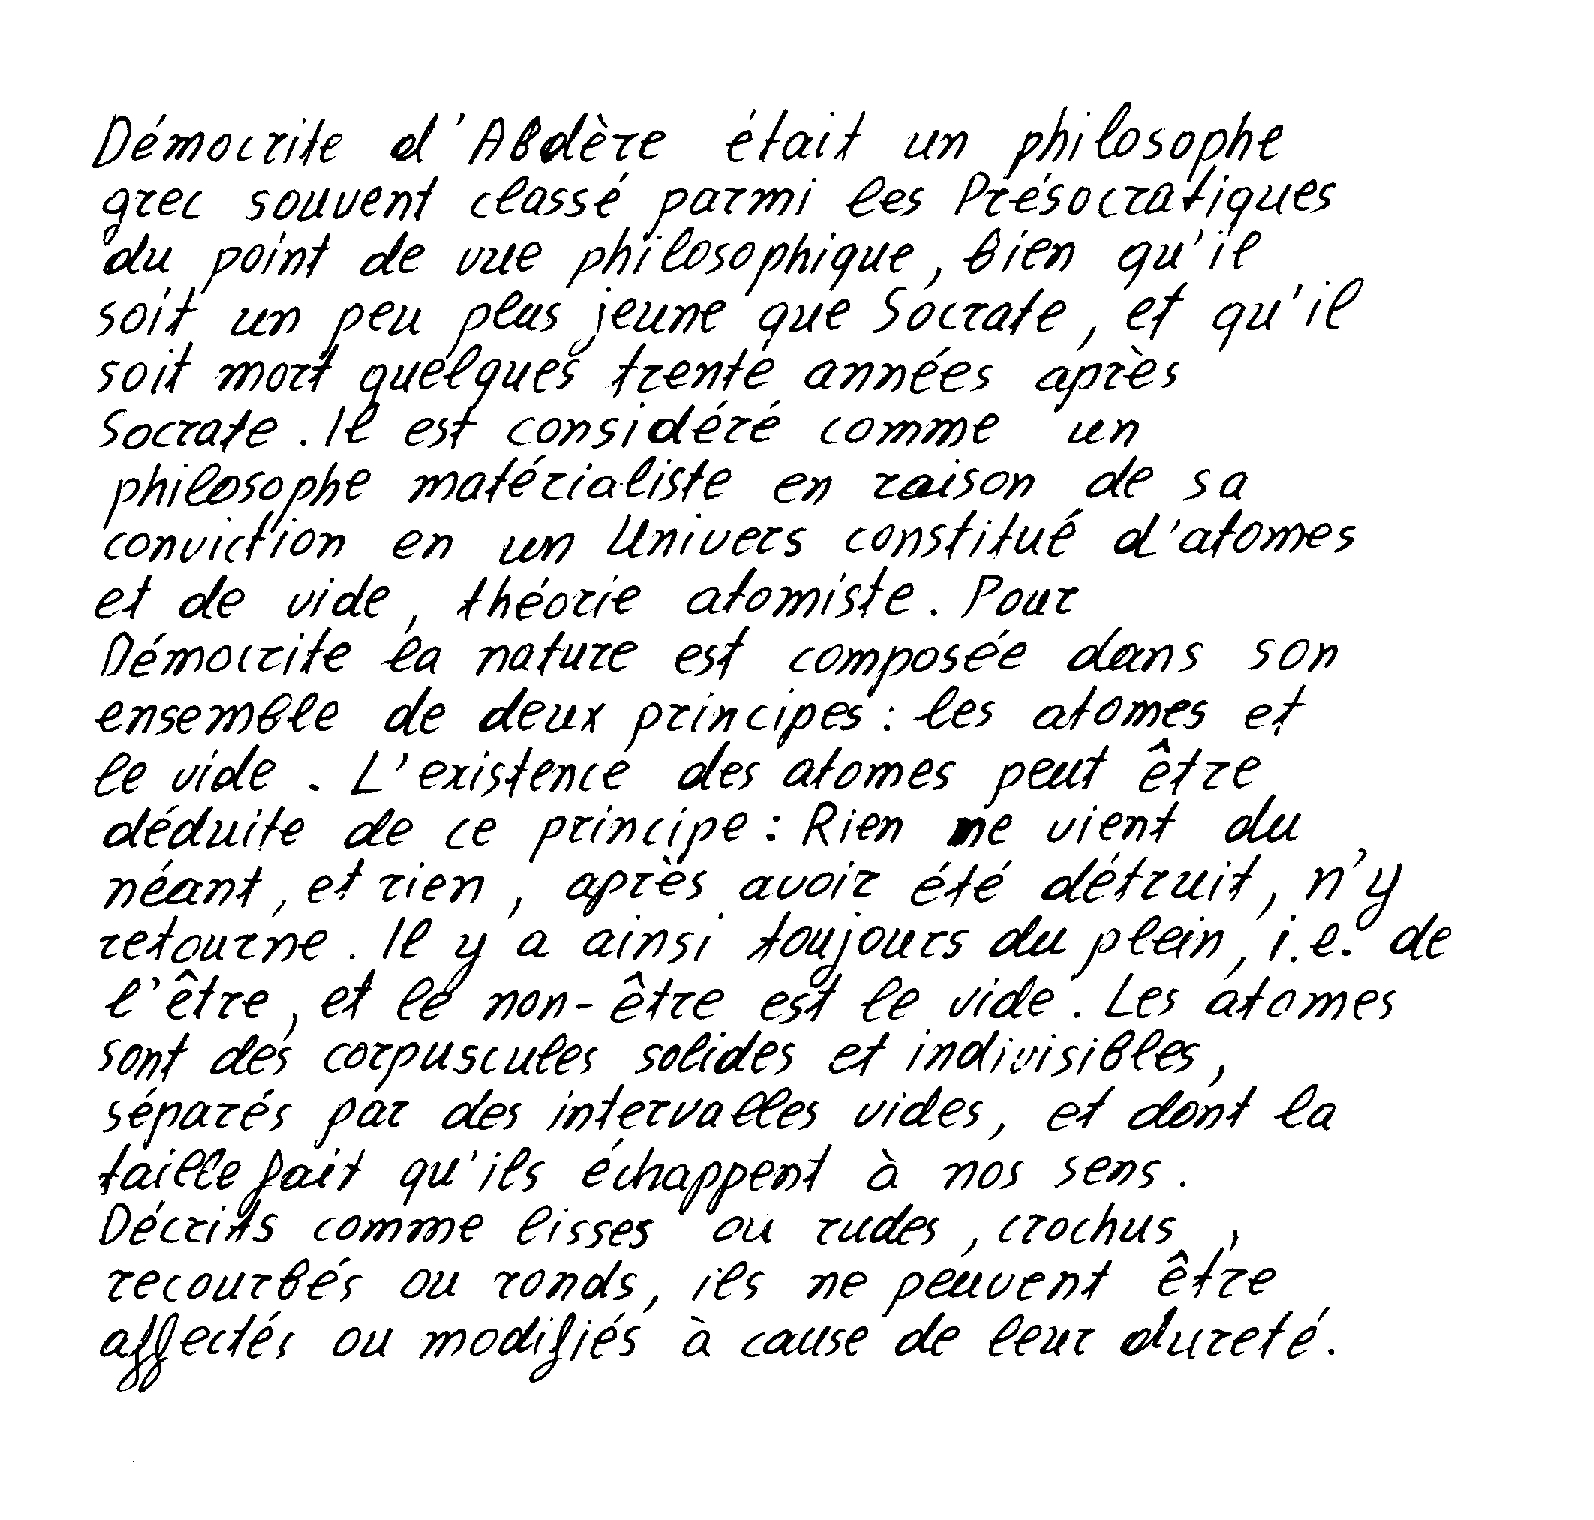 Démocrite d'Abdère était un philosophe
grec souvent classé parmi les Présocratiques
du point de vue philosophique, bien qu'il
soit un peu plus jeune que Socrate, et qu'il
soit mort quelques trente années après
Socrate. Il est considéré comme un
philosophe matérialiste en raison de sa
conviction en un Univers constitué d'atomes
et de vide, théorie atomiste. Pour
Démocrite la nature est composée dans son
ensemble de deux principes : les atomes et
le vide. L'existence des atomes peut être
déduite de ce principe : Rien ne vient du
néant, et rien, après avoir été détruit, n'y
retourne. Il y a ainsi toujours du plein, i.e. de
l'être, et le non-être est le vide. Les atomes
sont des corpuscules solides et indivisibles,
séparés par des intervalles vides, et dont la
taille fait qu'ils échappent à nos sens.
Décrits comme lisses ou rudes, crochus,
recourbés ou ronds, ils ne peuvent être
affectés ou modifiés à cause de leur dureté.